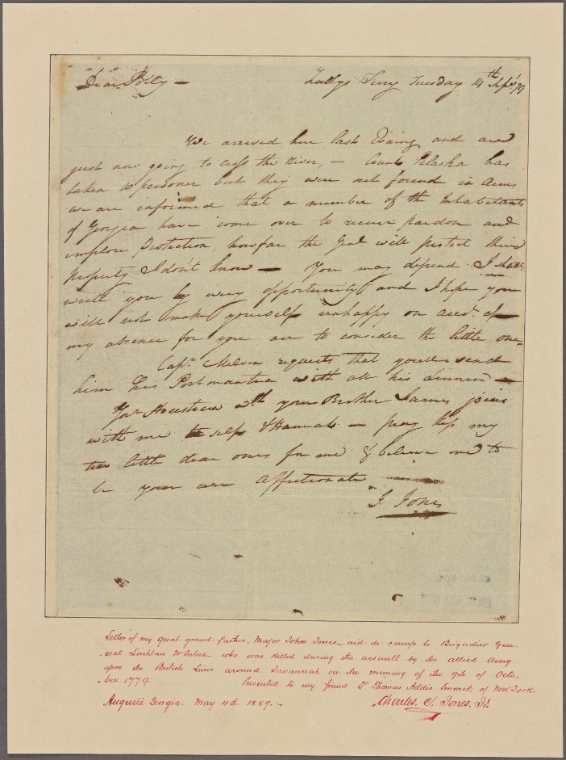 Dear Polly — Zublys Ferry Tuesday 14th Sept 79
We arrived here last Evening and are
just now going to cross the River, — Count Pulaska has
taken 10 prisoners but they were not found in Arms
we are informed that a number of the Inhabitants
of Georgia have come over to receive pardon and
implore Protection, how far the Genl will protect their
property I don't know — You may depend I shall
write you by every opportunity and I hope you
will not make yourself unhappy on acct. of
my absence for you are to consider the little ones
Capt. Melvin requests that you'll send
him his Portmantua with all his
with your Brother James joins
with me to self & Hannah — pray kiss my
two little dear ones for me & believe me to
be your ever Affectionate
J. Jones
Letter of my great grand-father, Major John Jones, aid-de-camp to Brigadier Gen-
eral Lachlan McIntosh, who was killed during the assault by the allied Army
upon the British lines around Savannah on the morning of the 9th of Octo-
ber 1779. Presented to my friend Dr Thomas Addis Emmet, of New York.
Augusta Georgia. May 11th 1889. — Charles C. Jones, Jr.